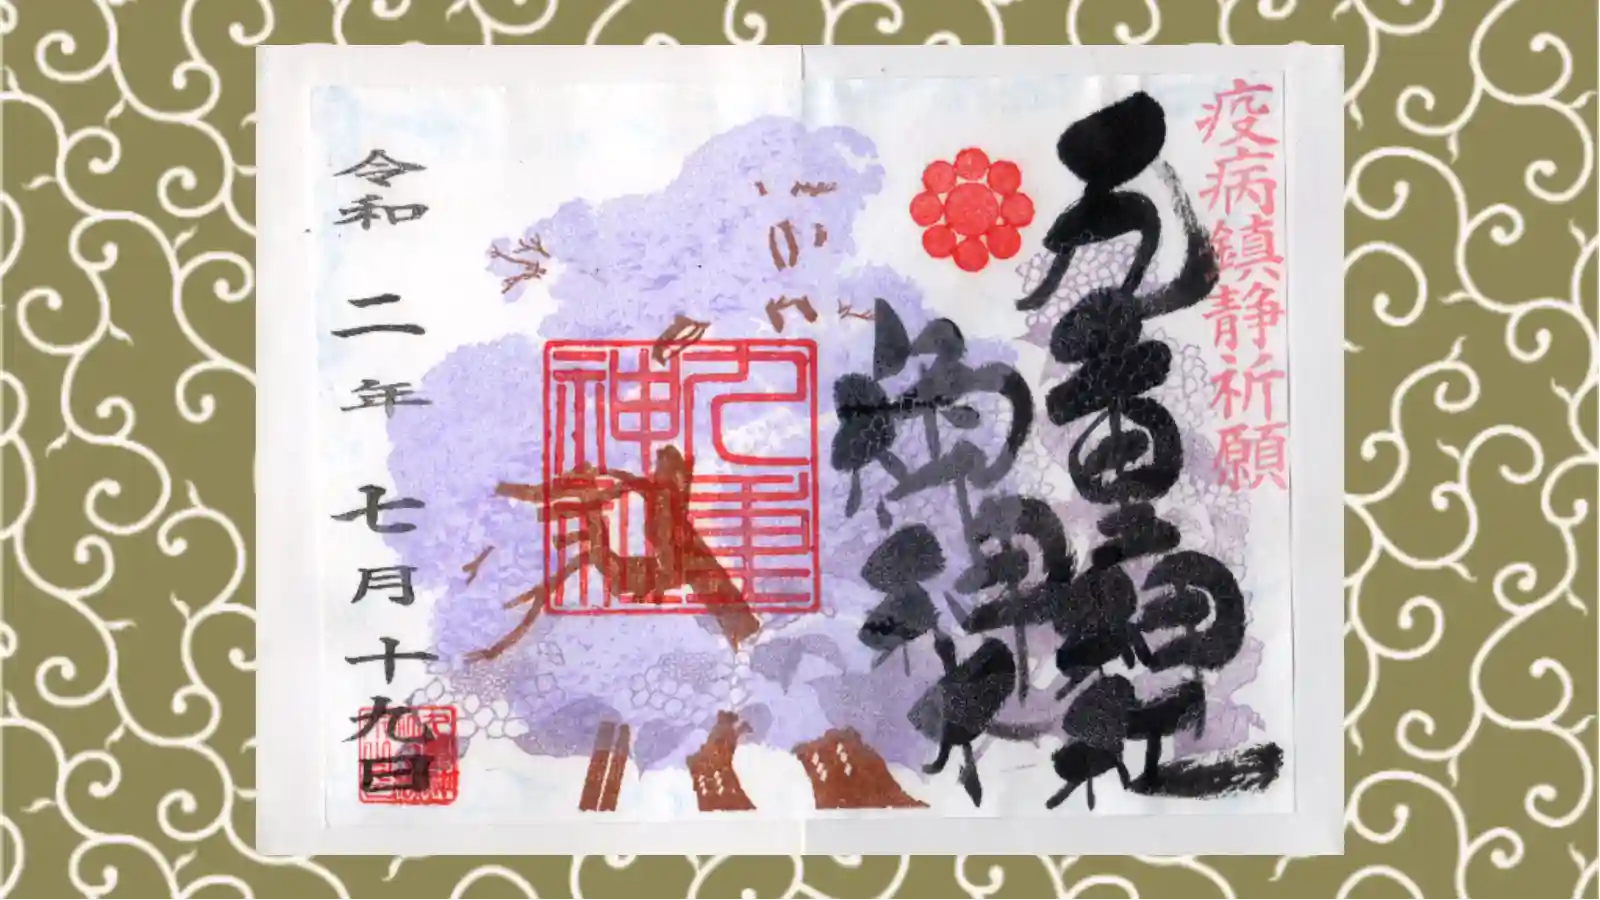 疫病鎮静祈願
九重神社
御神木
九重
神社
令和二年七月十九日